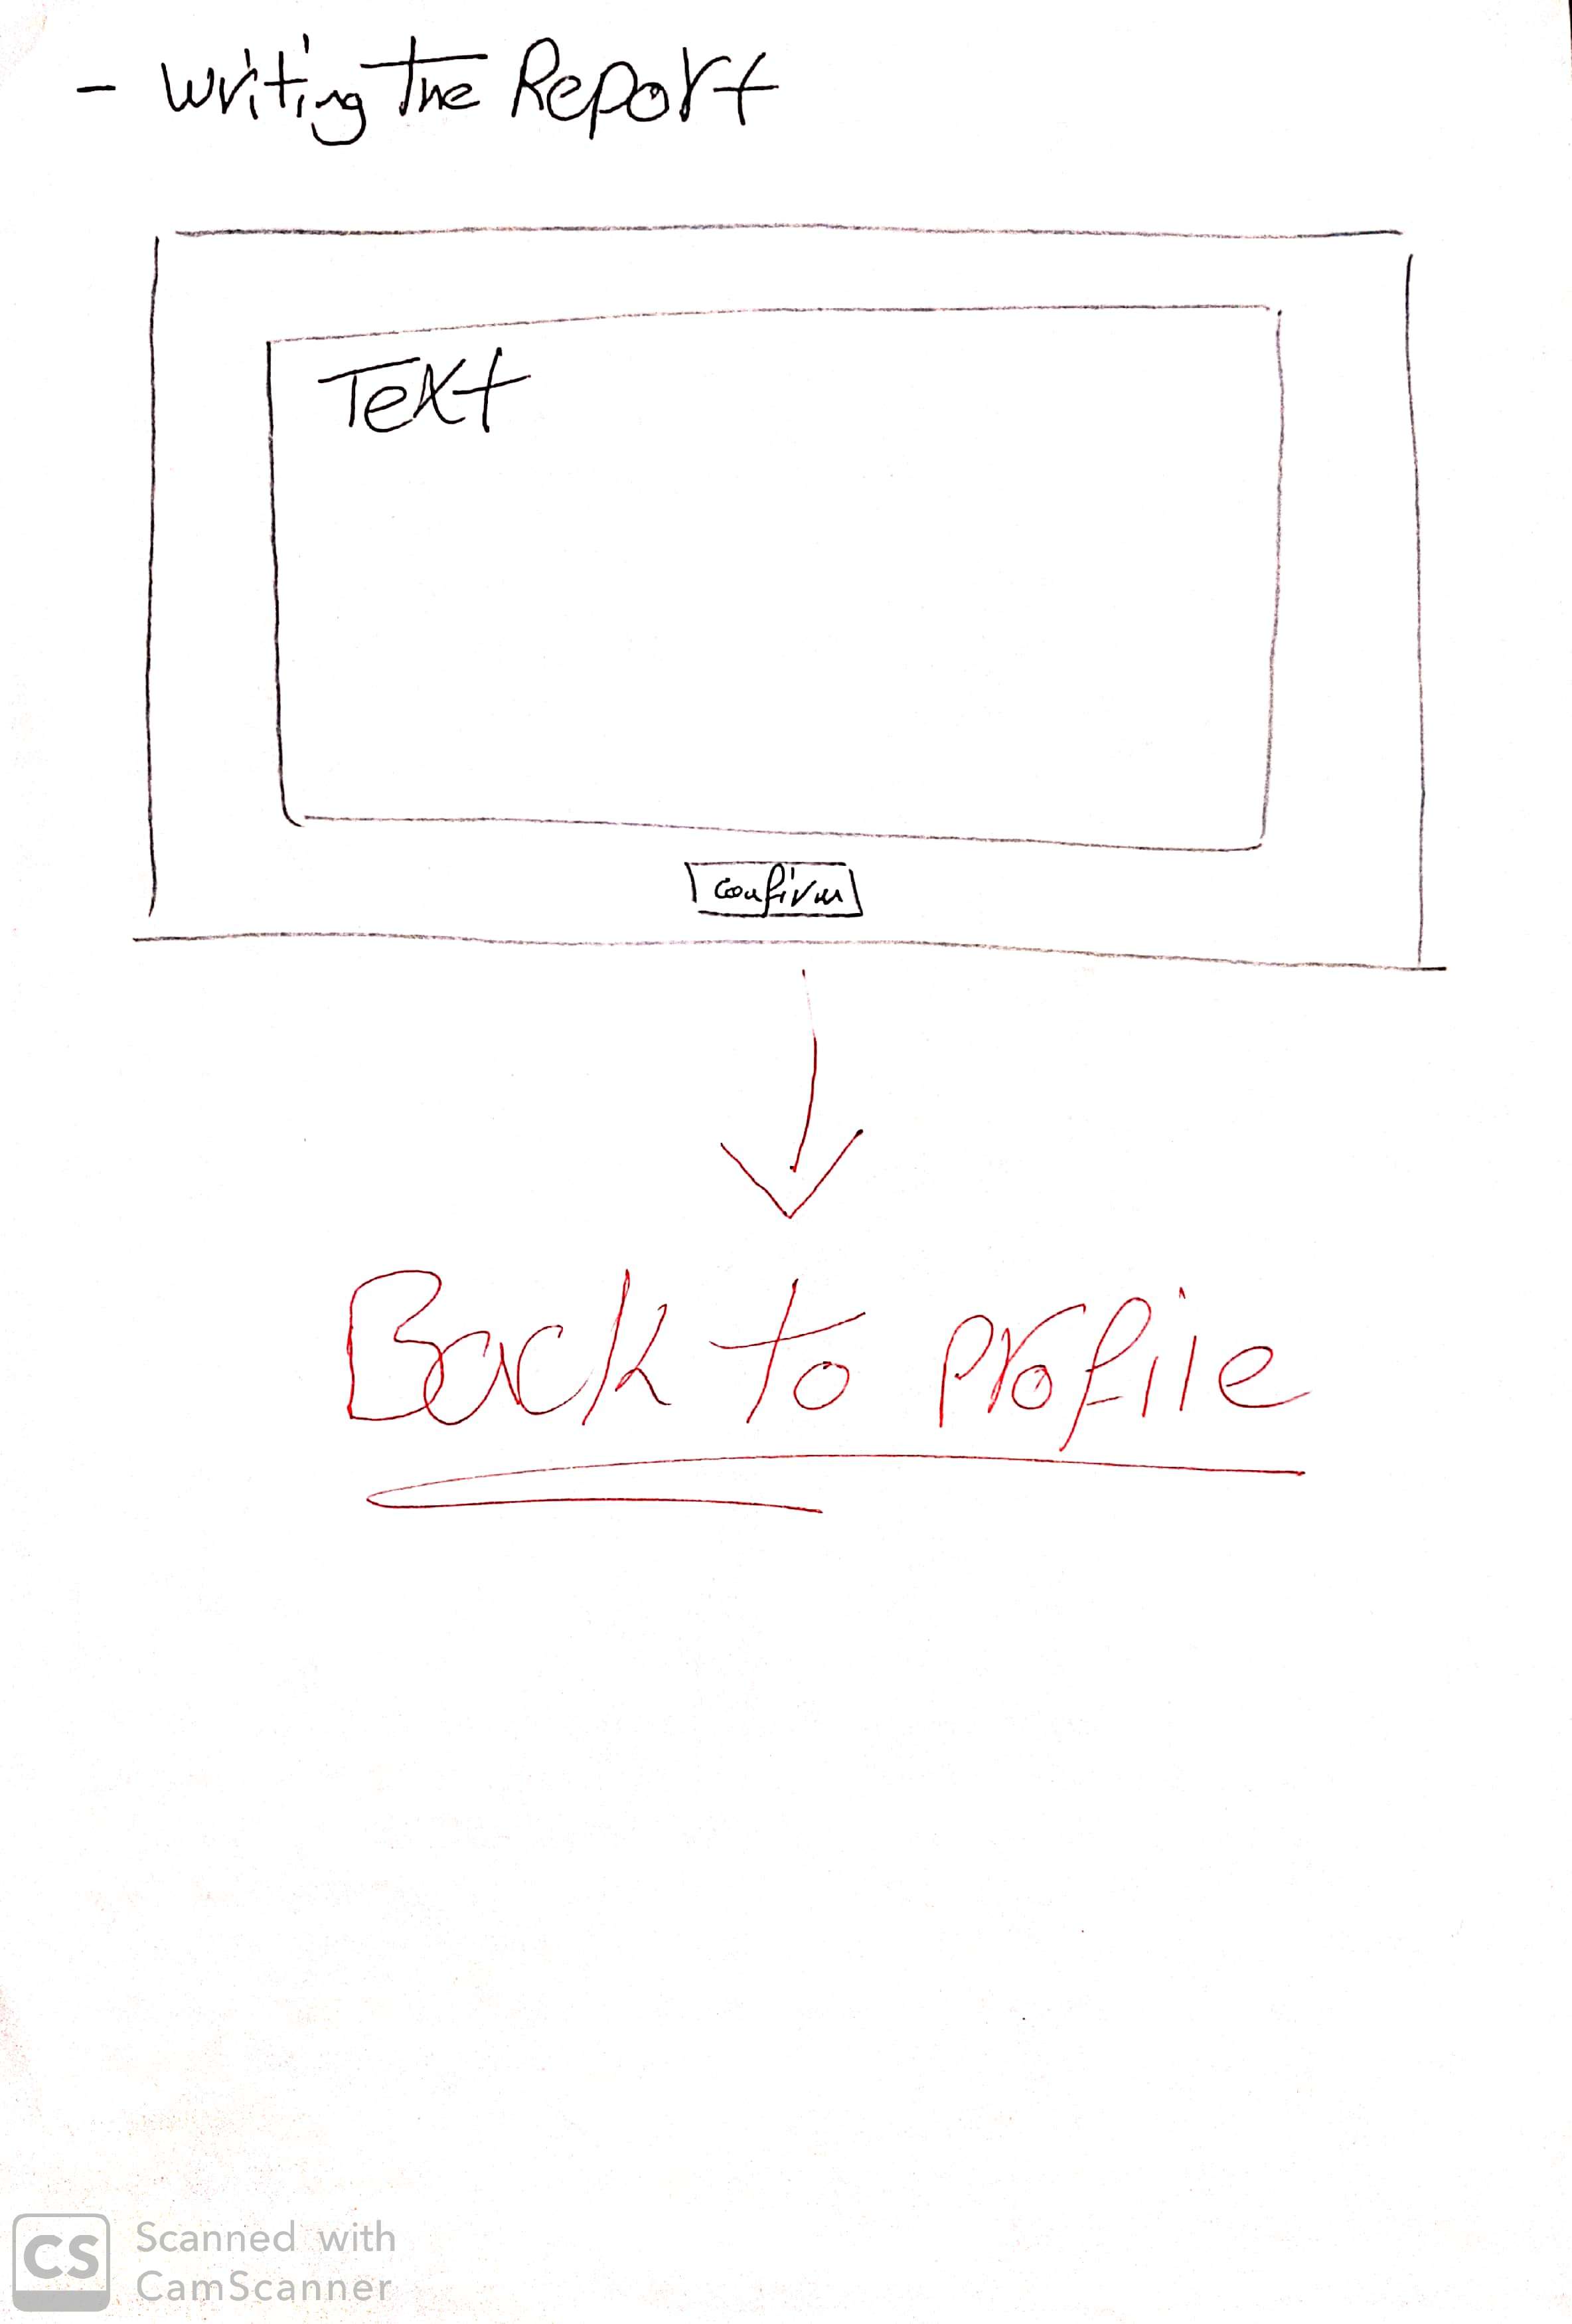 - Writing The Report
Text
Confirm
Back to profile
CS
Scanned with
CamScanner